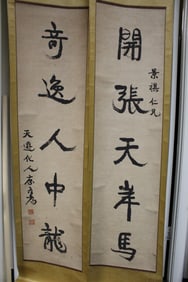 景祺仁兄
開張天岸馬
奇逸人中龍
天遊化人康有為